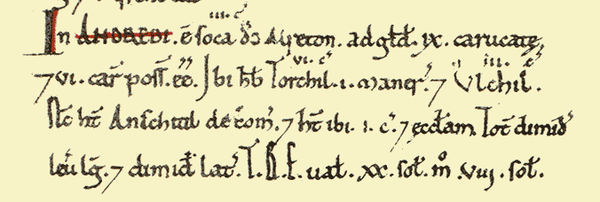 In ANDREBI. ē soca d̄o Alreton. ad gl̄d. ix. carucatę,
⁊ vi. car̄ poss̄. ēē. Ibi h̄b Torchil. i. maner̄. ⁊ Vlchil.
N̄c h̄t Anschitil de com̄. ⁊ h̄t ibi. i. c̄. ⁊ ęccl̄am. Tot̄ dimid̄
leu̅ lḡ. ⁊ dimid̄ lat̄. T.R.E. ual̄. xx. sol̄. m̊. viij. sol̄.